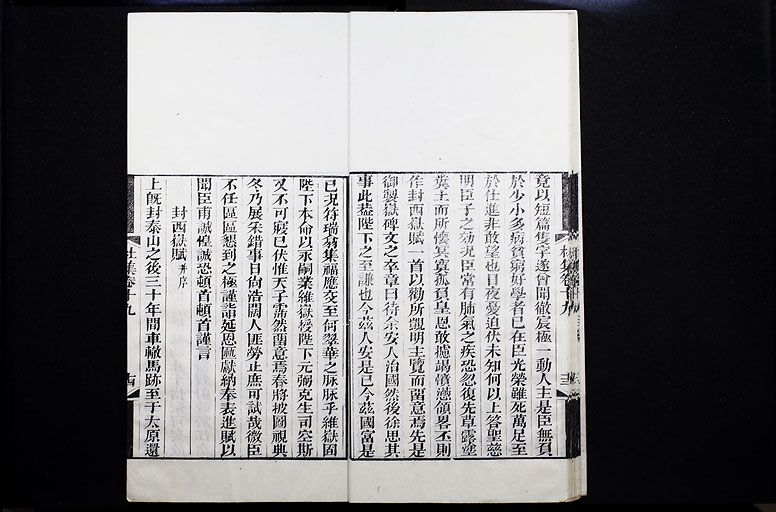 竟以短篇隻字遂曾聞徹宸極一動人主是臣無負
於少小多病貧窮好學者已在臣光榮雖死萬足至
於仕進非敢望也日夜憂迫伏未知何以上答聖慈
明臣子之効況臣常有肺氣之疾恐忽復先草露塗
糞土而所懷冥寞孤負皇恩敢攄竭憤懣領畧丕則
作封西嶽賦一首以勸所覬明主覽而留意焉先是
御製嶽碑文之卒章曰待余安人治國然後徐思其
事此葢陛下之至謙也今茲人安是已今茲國富是
已況符瑞翕集福應交至何翠華之脉脉乎維嶽固
陛下本命以永嗣業維嶽授陛下元弼克生司空斯
又不可寢已伏惟天子霈然留意焉春將披圖視典
冬乃展采錯事日尙浩闊人匪勞止庶可試哉微臣
不任區區懇到之極謹詣延恩匭獻納奉表進賦以
聞臣甫誠惶誠恐頓首頓首謹言
封西嶽賦 并序
上旣封泰山之後三十年間車轍馬跡至于太原還
杜集卷十九
十四